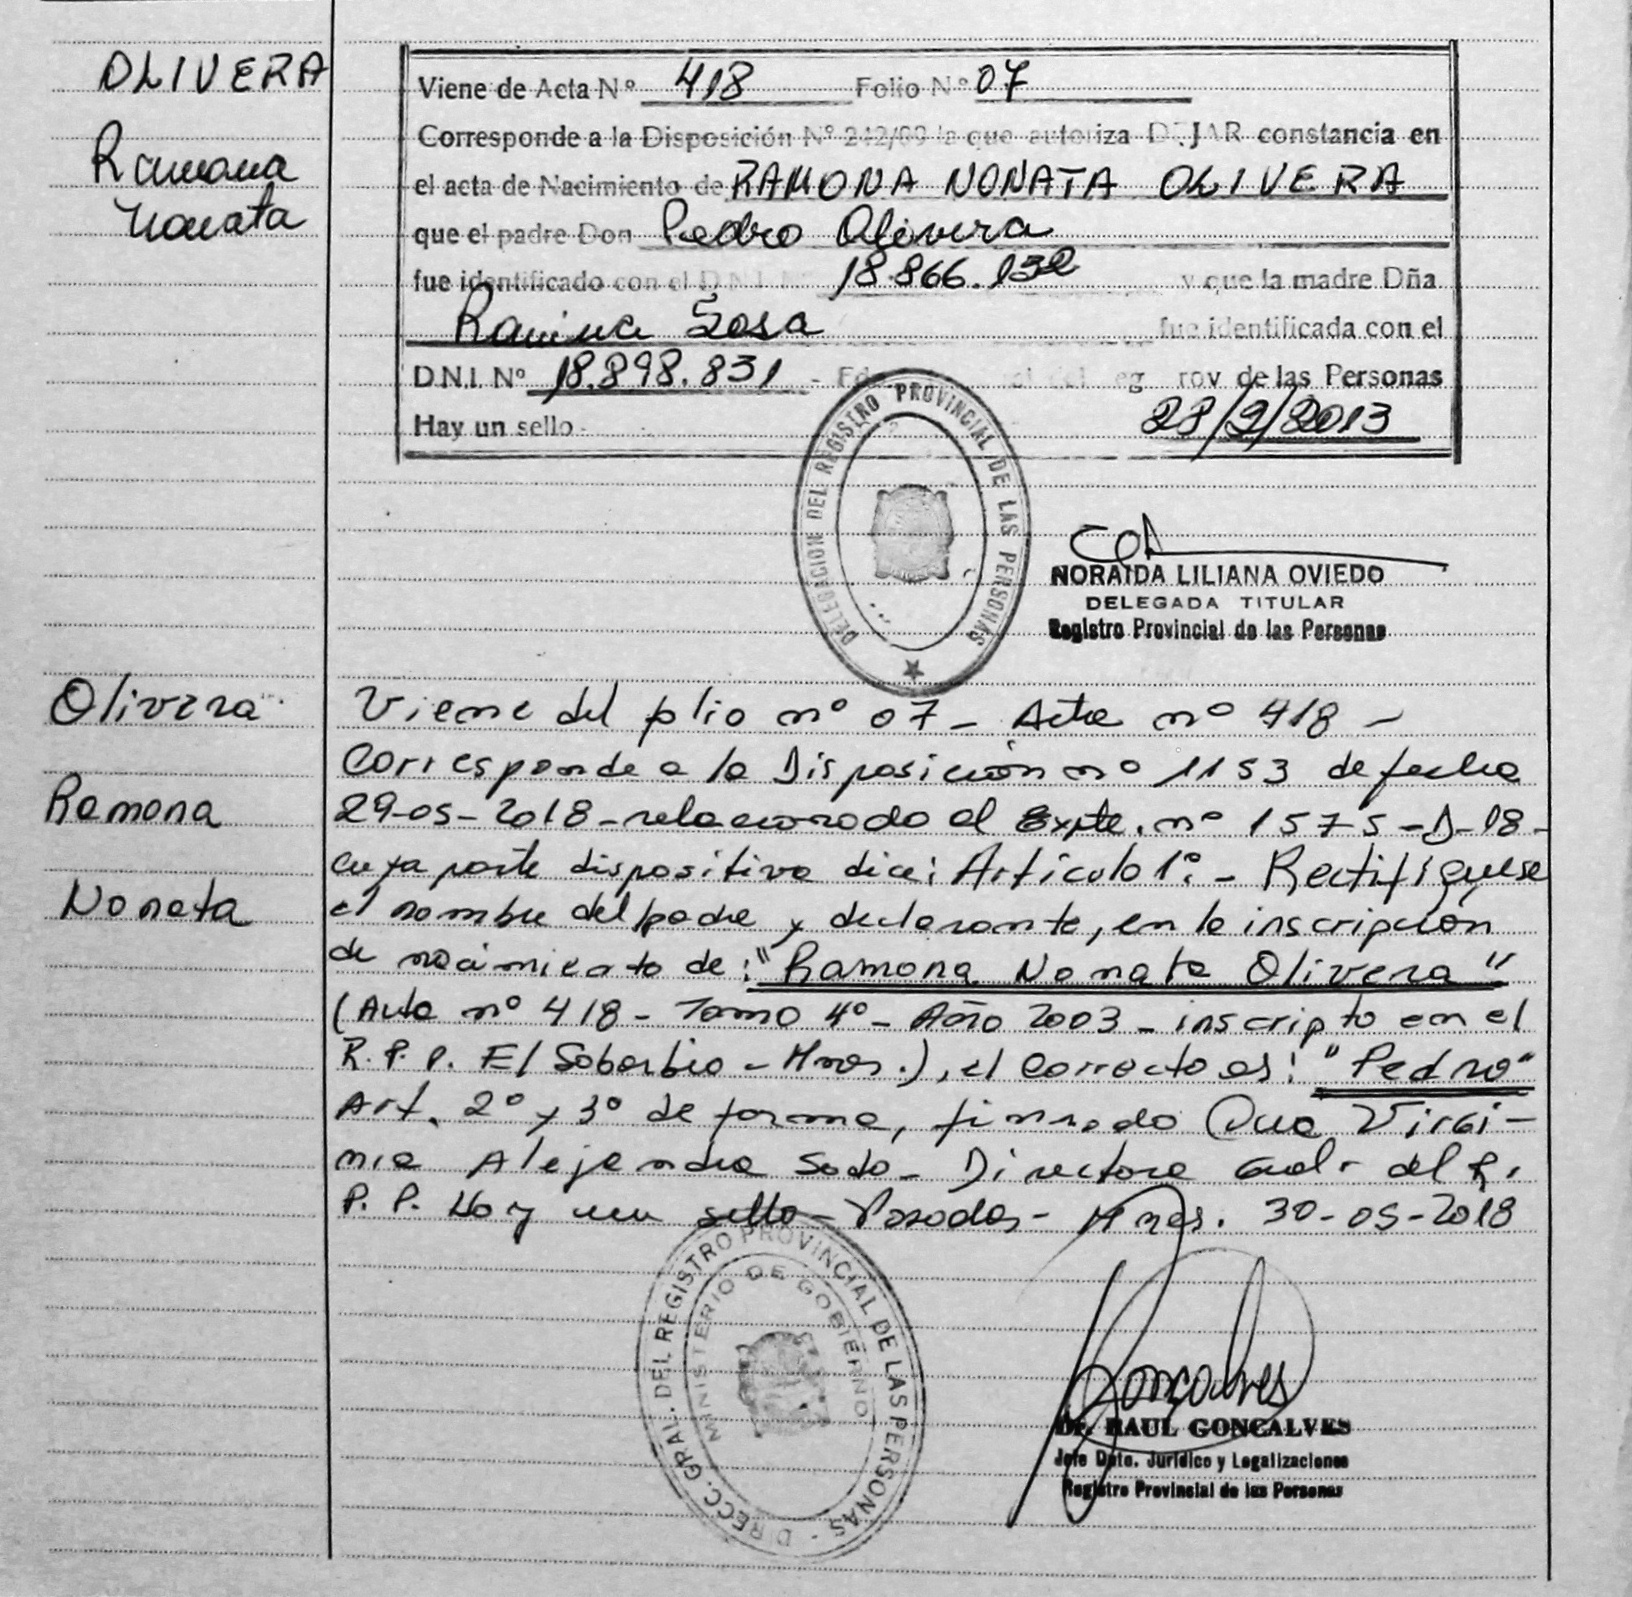 OLIVERA
Ramona
Nonata
Viene de Acta Nº 418 Folio Nº 07
Corresponde a la Disposición Nº 242/09 la que autoriza DEJAR constancia en
el acta de Nacimiento de RAMONA NONATA OLIVERA
que el padre Don Pedro Olivera
fue identificado con el D.N.I. Nº 18.866.132 y que la madre Dña
Ramina Sosa fue identificada con el
D.N.I. Nº 18.898.831 - de las Personas
Hay un sello - 28/2/2013
DELEGACION DEL REGISTRO PROVINCIAL DE LAS PERSONAS
NORAIDA LILIANA OVIEDO
DELEGADA TITULAR
Registro Provincial de las Personas
Olivera
Ramona
Nonata
Viene del folio nº 07 - Acta nº 418 -
Corresponde a la Disposición nº 1153 de fecha
29-05-2018 - relacionado al Expte. nº 1575-D-18-
cuya parte dispositiva dice: Artículo 1º: - Rectifíquese
el nombre del padre y declarante, en la inscripción
de nacimiento de: "Ramona Nonata Olivera"
(Acta nº 418 - Tomo 4º - Año 2003 - inscripto en el
R.P.P. El Soberbio - Mnes.), el correcto es: "Pedro"
Art. 2º y 3º de forma, firmado Dra Virgi-
nia Alejandra Sodo - Directora Gral. del R.
P.P. Hay un sello - Posadas - Mnes. 30-05-2018
DIRECC. GRAL. DEL REGISTRO PROVINCIAL DE LAS PERSONAS -
MINISTERIO DE GOBIERNO
Goncalves
Dr. RAUL GONCALVES
Jefe Dpto. Jurídico y Legalizaciones
Registro Provincial de las Personas